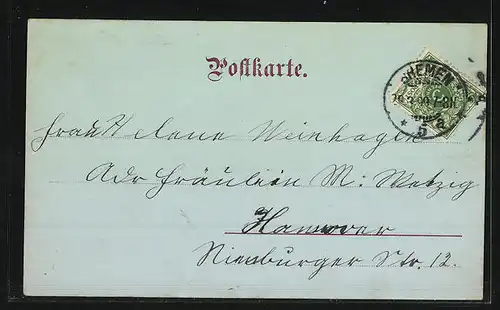 Postkarte.
BREMEN
5
Frau Helene Weinhagen
Adr Fräulein M. Metzig
Hannover
Nienburger Str. 12.